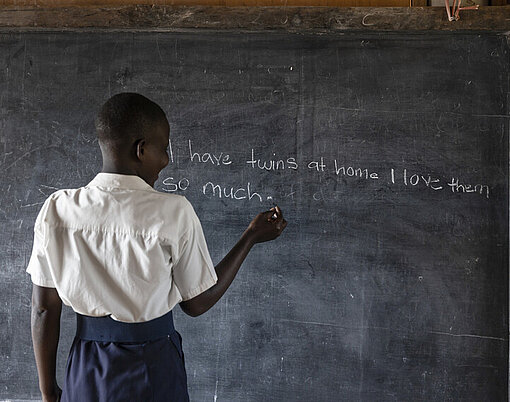 I have twins at home I love them
so much.